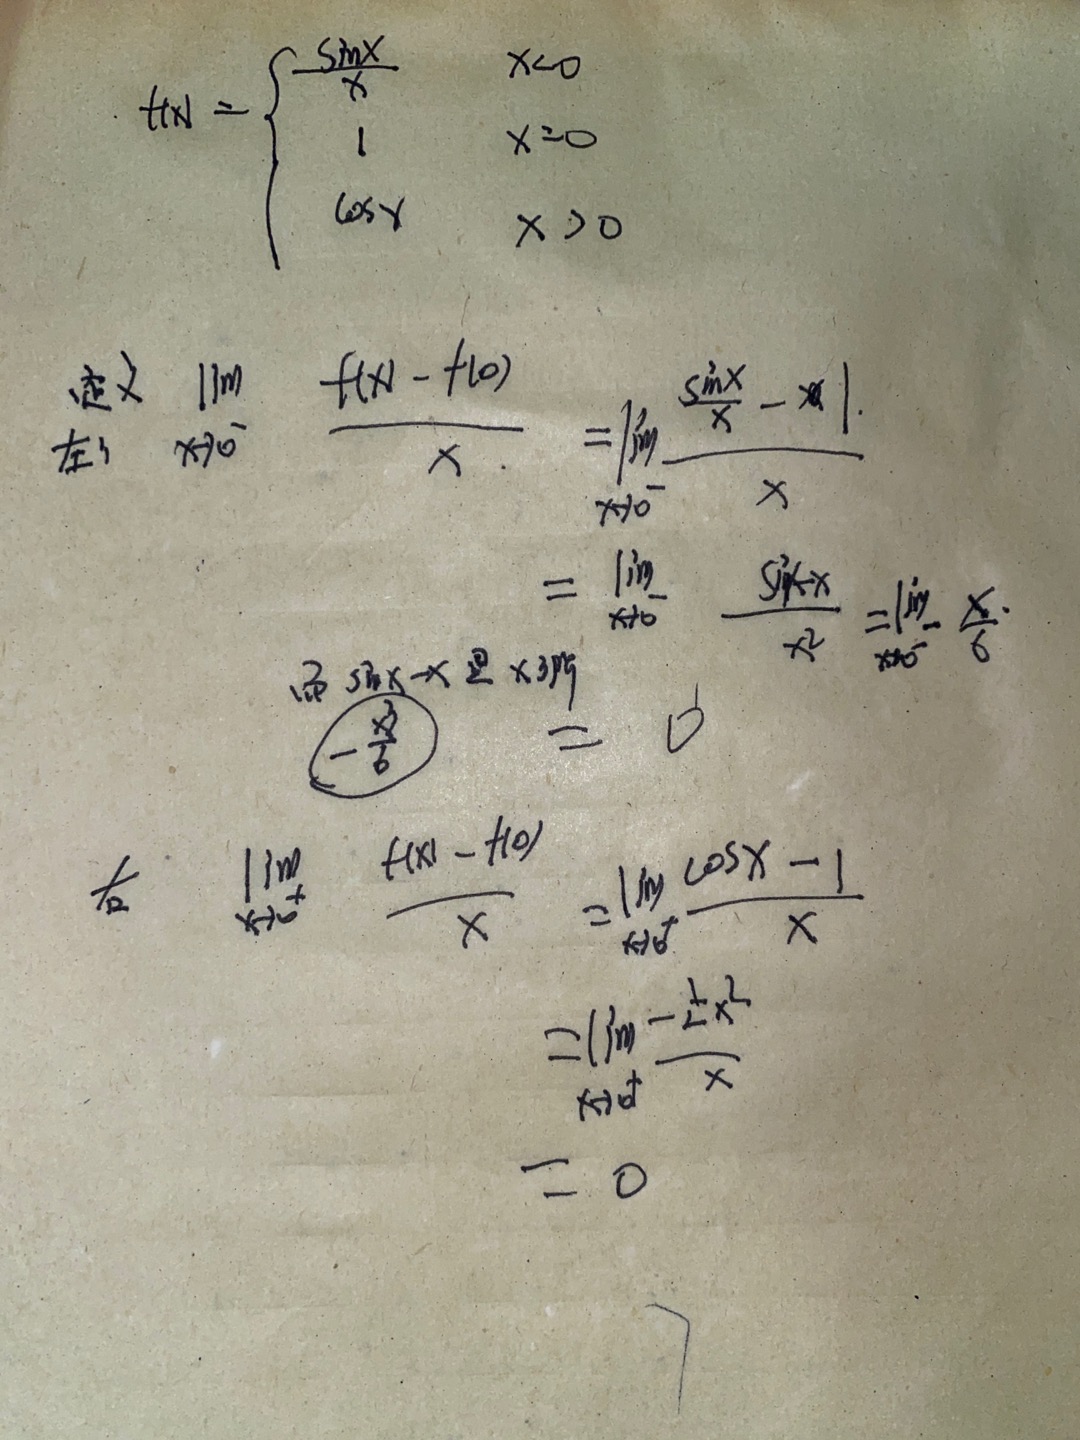 f(x) = { sinx/x x<0
1 x=0
cosx x>0
定义 lim x→0⁻ (f(x) - f(0))/x = lim x→0⁻ (sinx/x - 1)/x
左
= lim x→0⁻ (sinx-x)/x² = lim x→0⁻ x/6
而 sinx-x 是 x3阶
-x³/6 = 0
右 lim x→0⁺ (f(x) - f(0))/x = lim x→0⁺ (cosx - 1)/x
= lim x→0⁺ (-½x²)/x
= 0